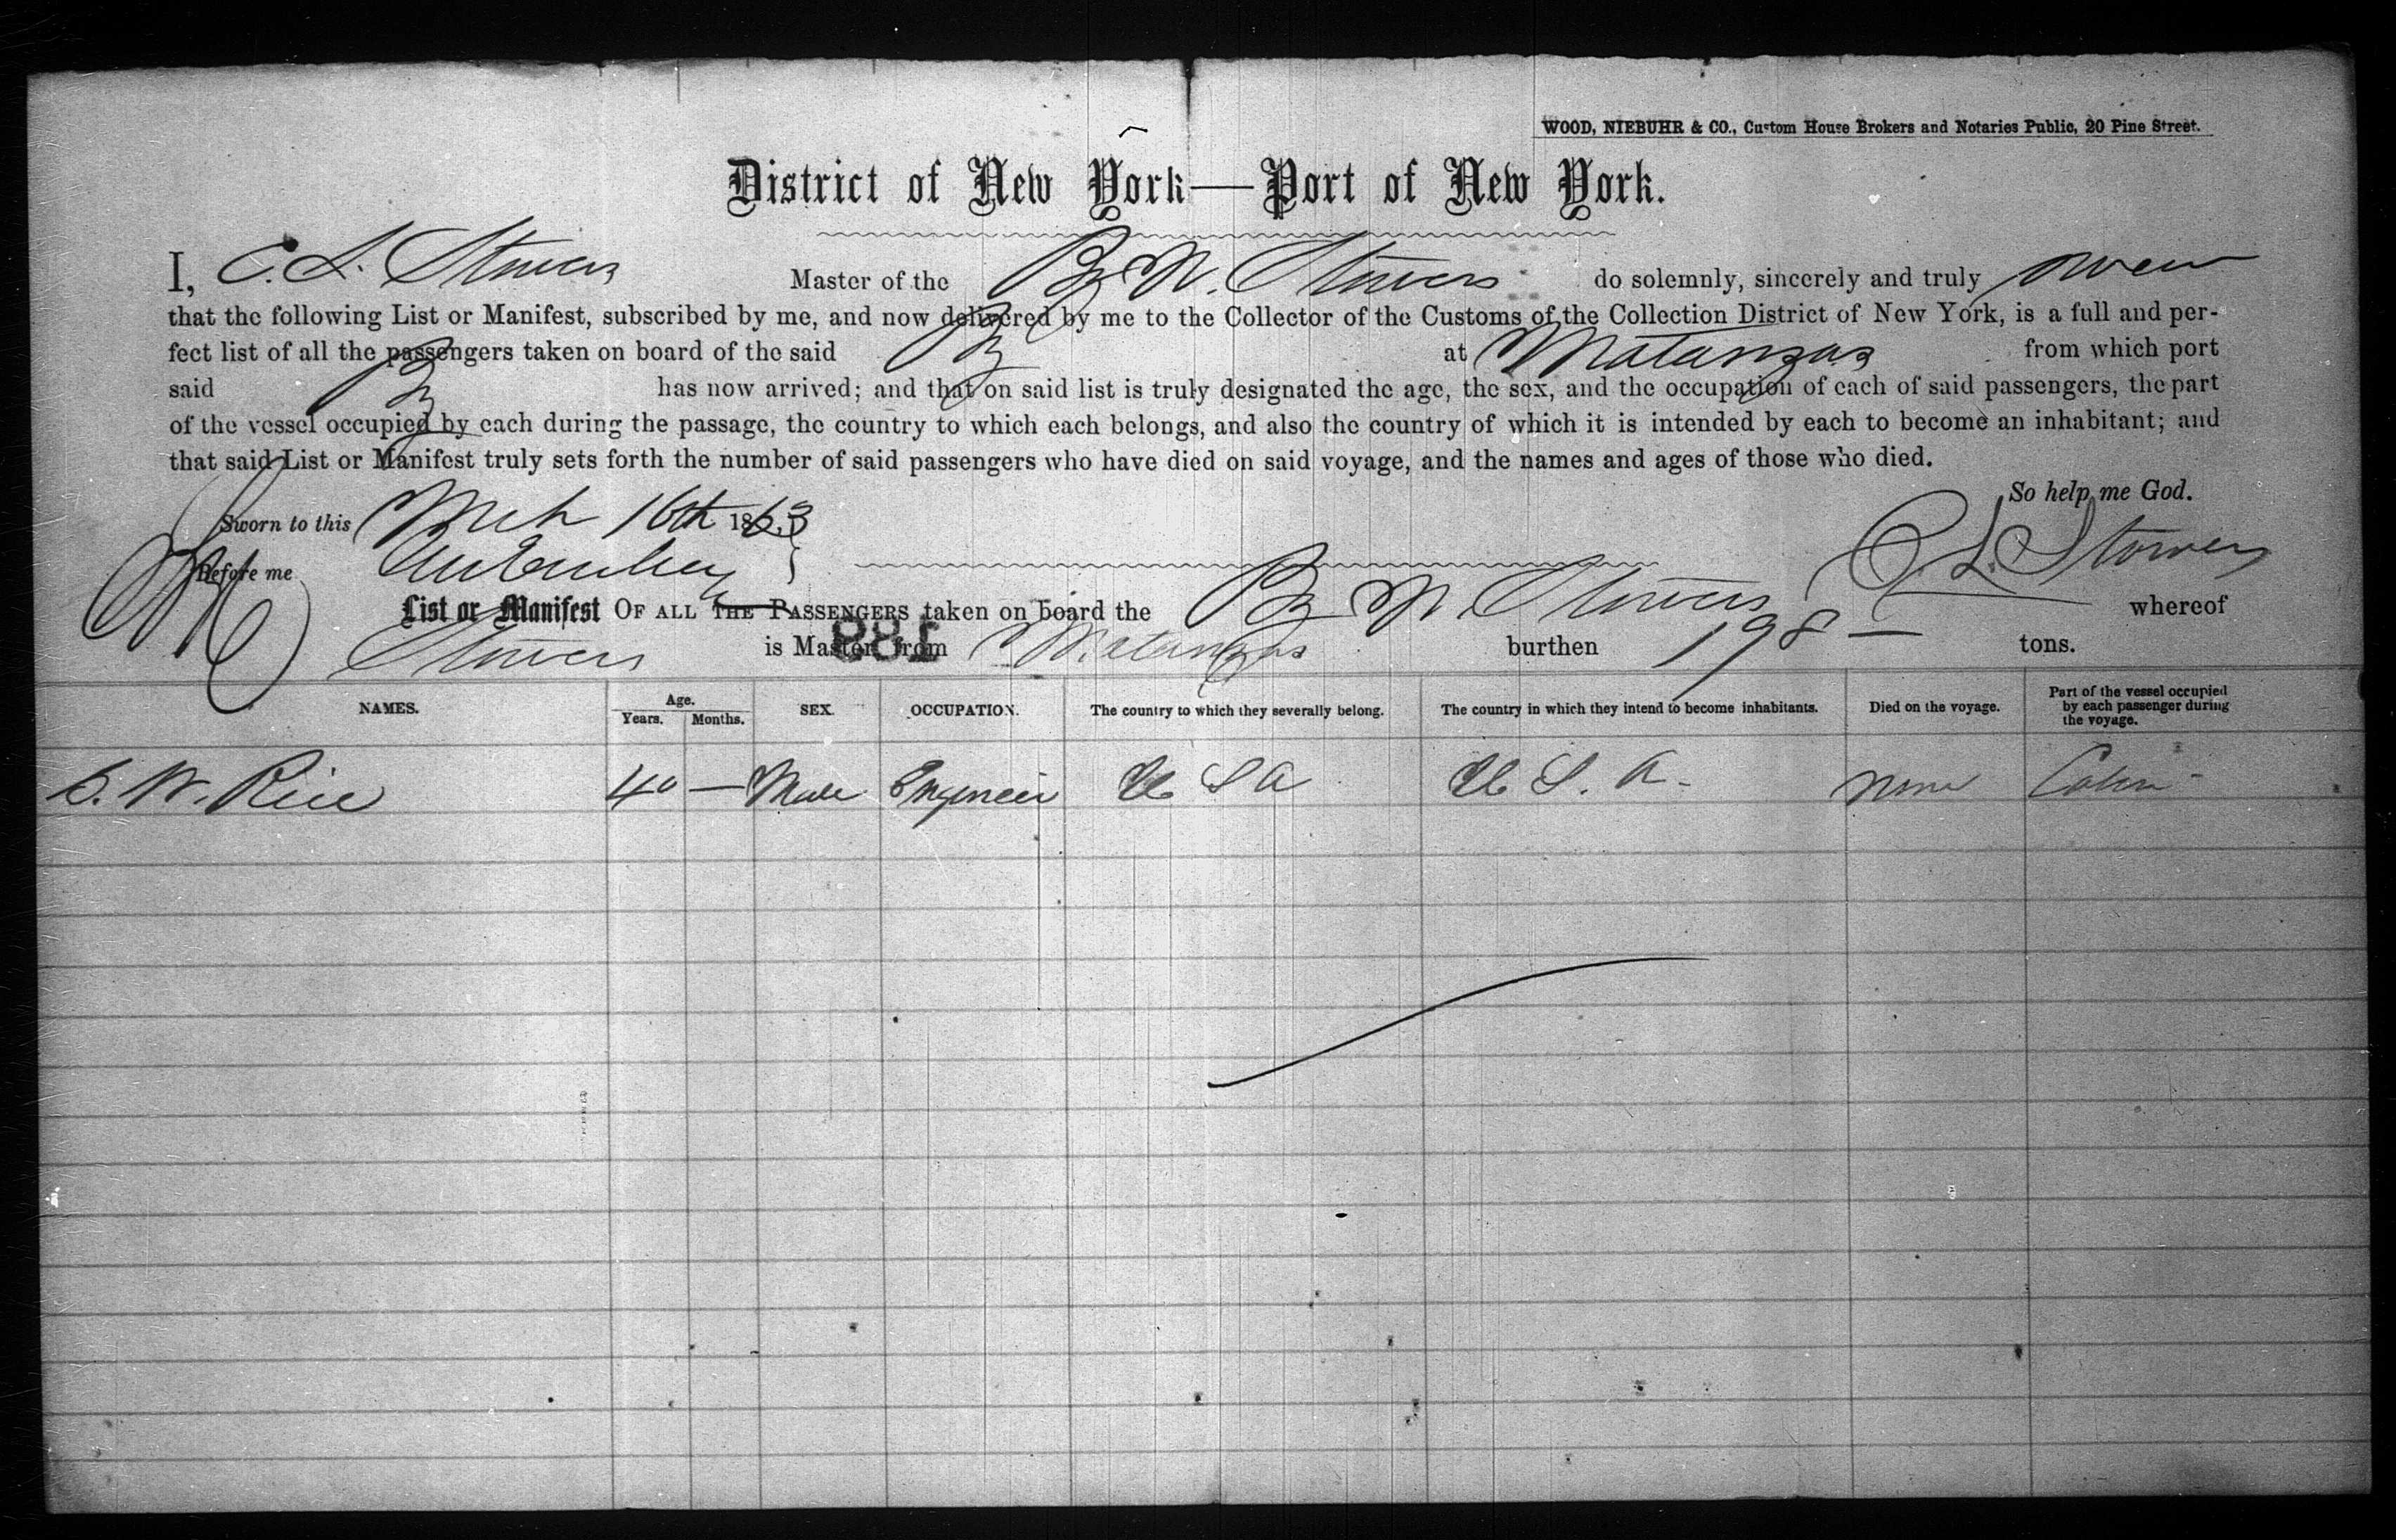 WOOD, NIEBUHR & CO., Custom House Brokers and Notaries Public, 20 Pine Street.
District of New York—Port of New York.
I, C. L. Stowers Master of the Bg N. Stowers do solemnly, sincerely and truly swear
that the following List or Manifest, subscribed by me, and now delivered by me to the Collector of the Customs of the Collection District of New York, is a full and per-
fect list of all the passengers taken on board of the said Bg at Matanzas from which port
said Bg has now arrived; and that on said list is truly designated the age, the sex, and the occupation of each of said passengers, the part
of the vessel occupied by each during the passage, the country to which each belongs, and also the country of which it is intended by each to become an inhabitant; and
that said List or Manifest truly sets forth the number of said passengers who have died on said voyage, and the names and ages of those who died.
So help me God.
Sworn to this Mch 16th 1863
C. L. Stowers
Before me
List or Manifest OF ALL THE PASSENGERS taken on board the Bg N. Stowers whereof
Stowers is Master from Matanzas burthen 198 — tons.
188
NAMES. Age. Years. Months. SEX. OCCUPATION. The country to which they severally belong. The country in which they intend to become inhabitants. Died on the voyage. Part of the vessel occupied by each passenger during the voyage.
S. W. Rice 40 — Male Engineer U S A U. S. A. None Cabin